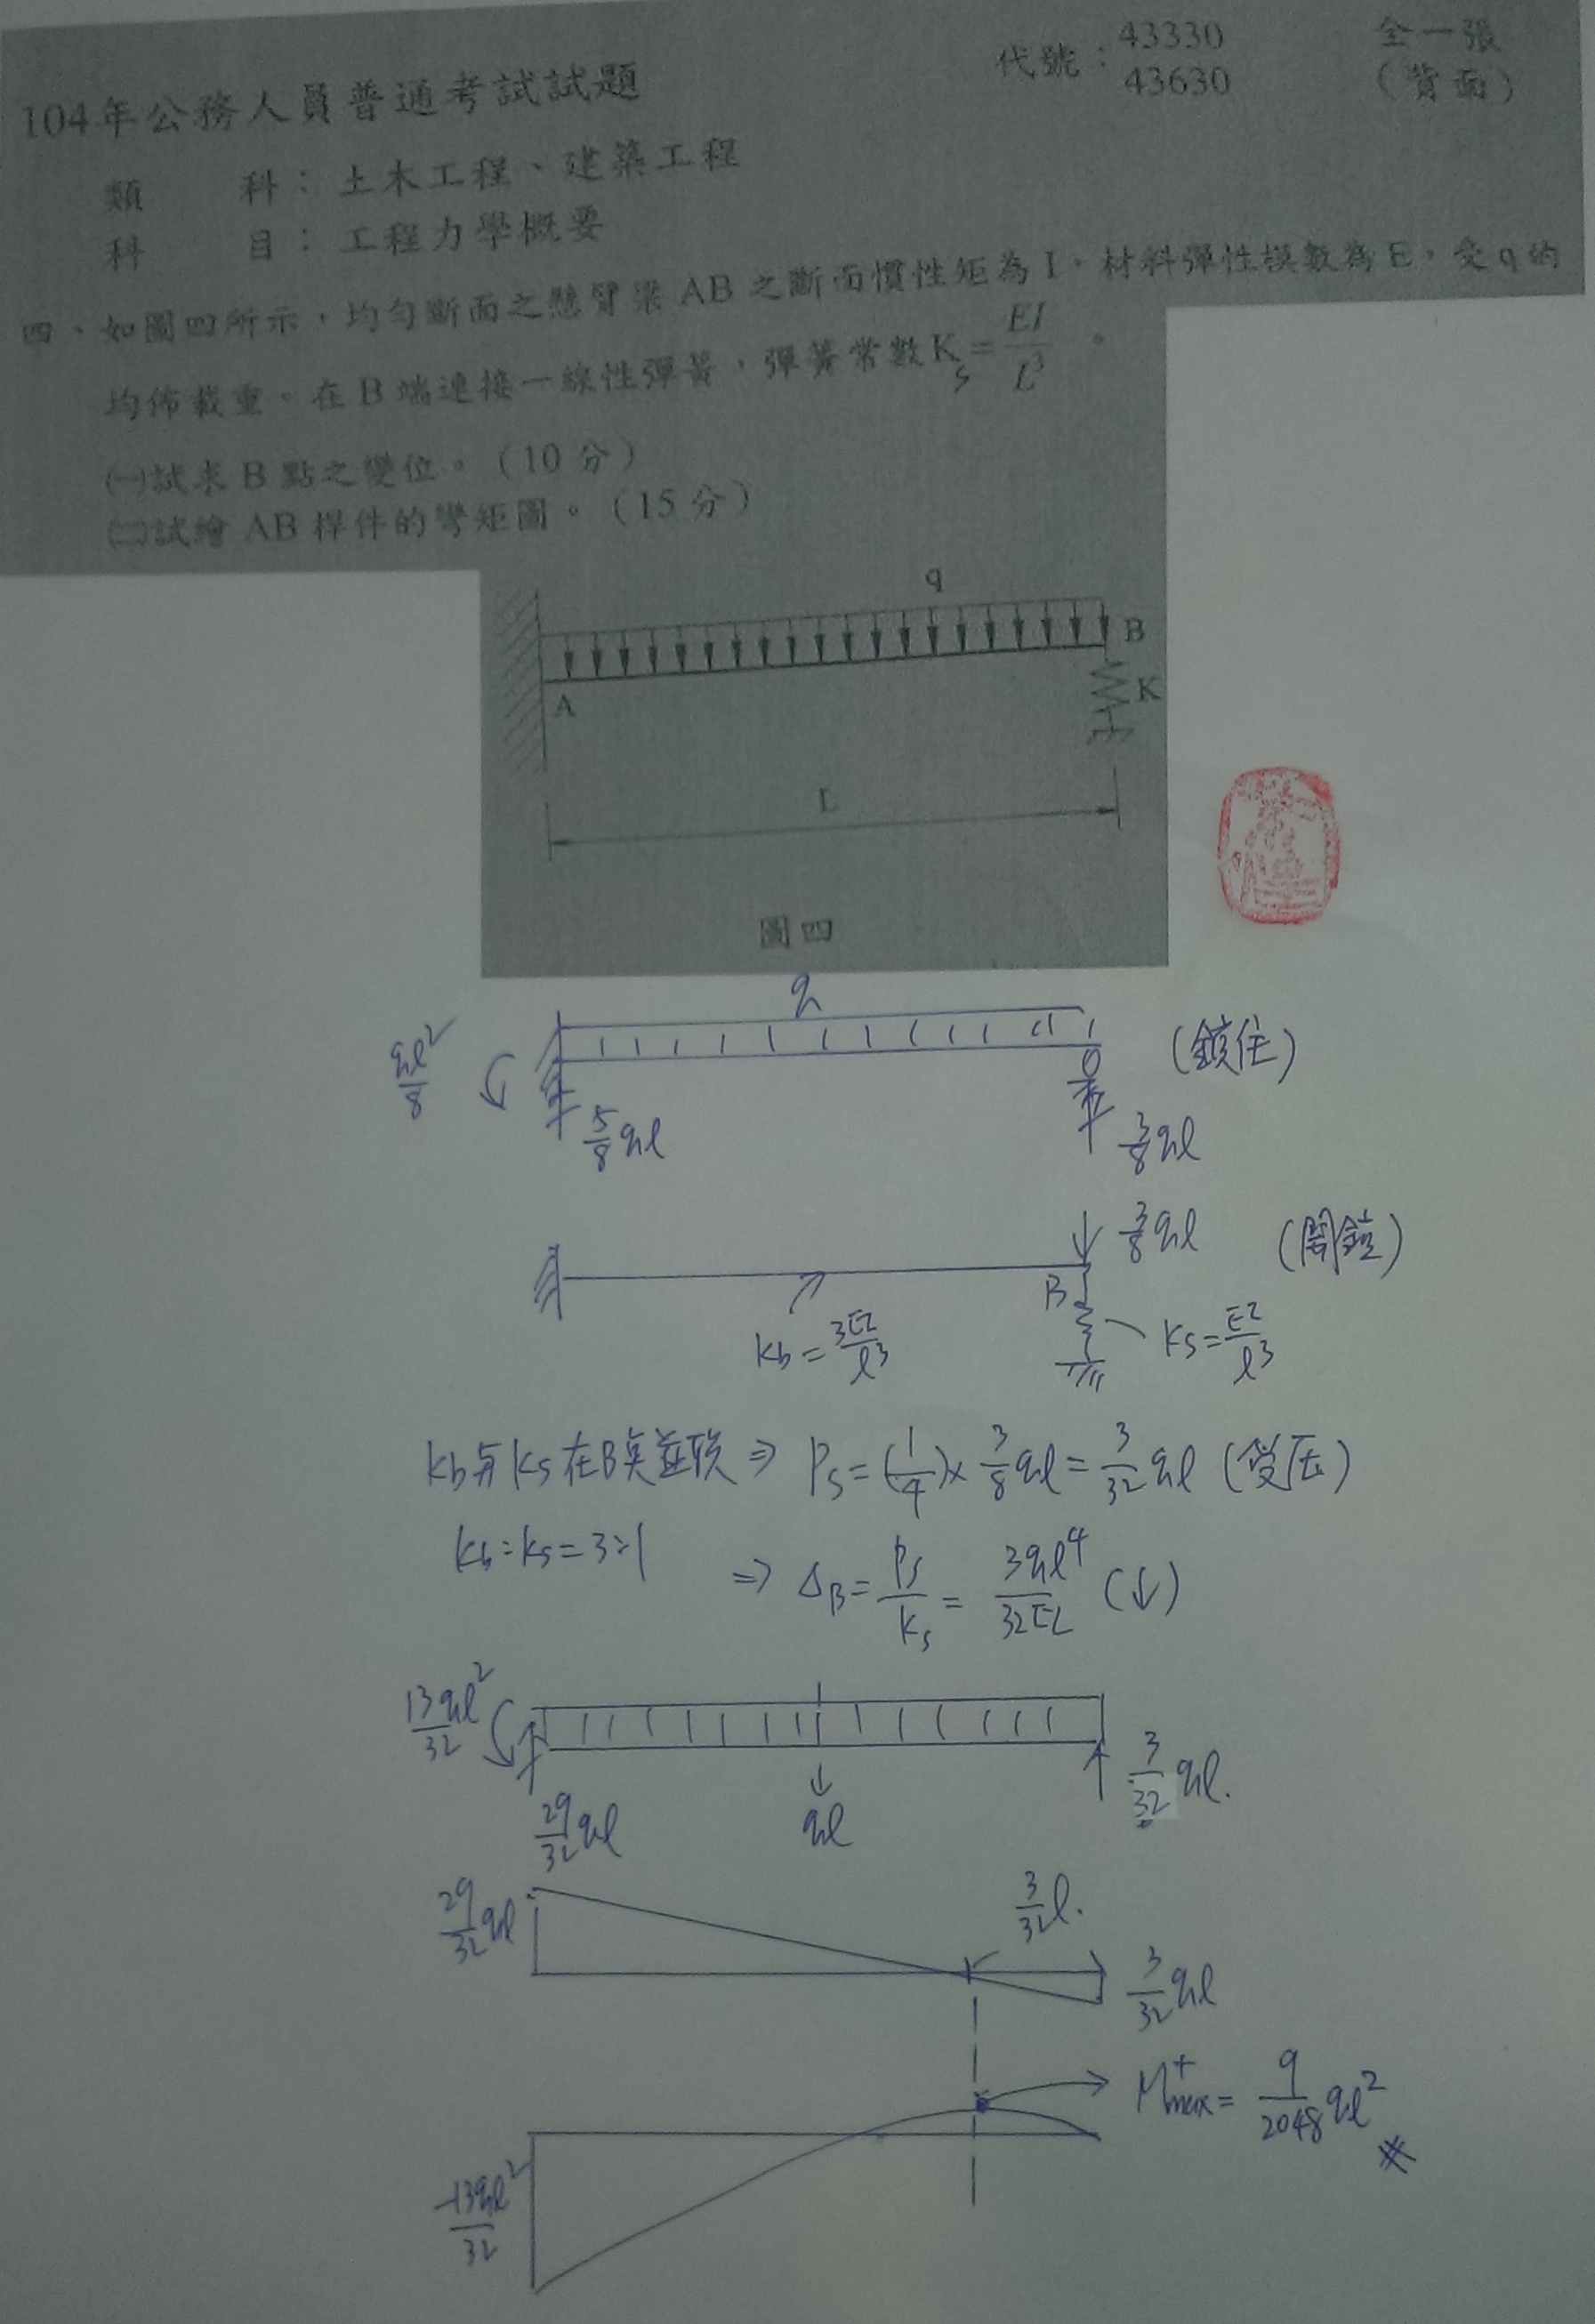 104年公務人員普通考試試題
代號：43330
43630
全一張
（背面）
類 科：土木工程、建築工程
科 目：工程力學概要
四、如圖四所示，均勻斷面之懸臂梁 AB 之斷面慣性矩為 I，材料彈性模數為 E，受 q 的
均佈載重。在 B 端連接一線性彈簧，彈簧常數 Ks = EI/L³ 。
㈠試求 B 點之變位。（10 分）
㈡試繪 AB 桿件的彎矩圖。（15 分）
q
B
A
K
L
圖四
q
ql²/8
(鎖住)
5/8 ql
3/8 ql
3/8 ql
(開鎖)
B
kb = 3EI/l³
ks = EI/l³
kb與ks在B點並聯 ⇒ Ps = (1/4) × 3/8 ql = 3/32 ql (受压)
kb : ks = 3 : 1
⇒ ΔB = Ps/ks = 3ql⁴/32EI (↓)
13ql²/32
3/32 ql.
29/32 ql
ql
29/32 ql
3/32 l.
3/32 ql
M⁺max = 9/2048 ql²
-13ql²/32